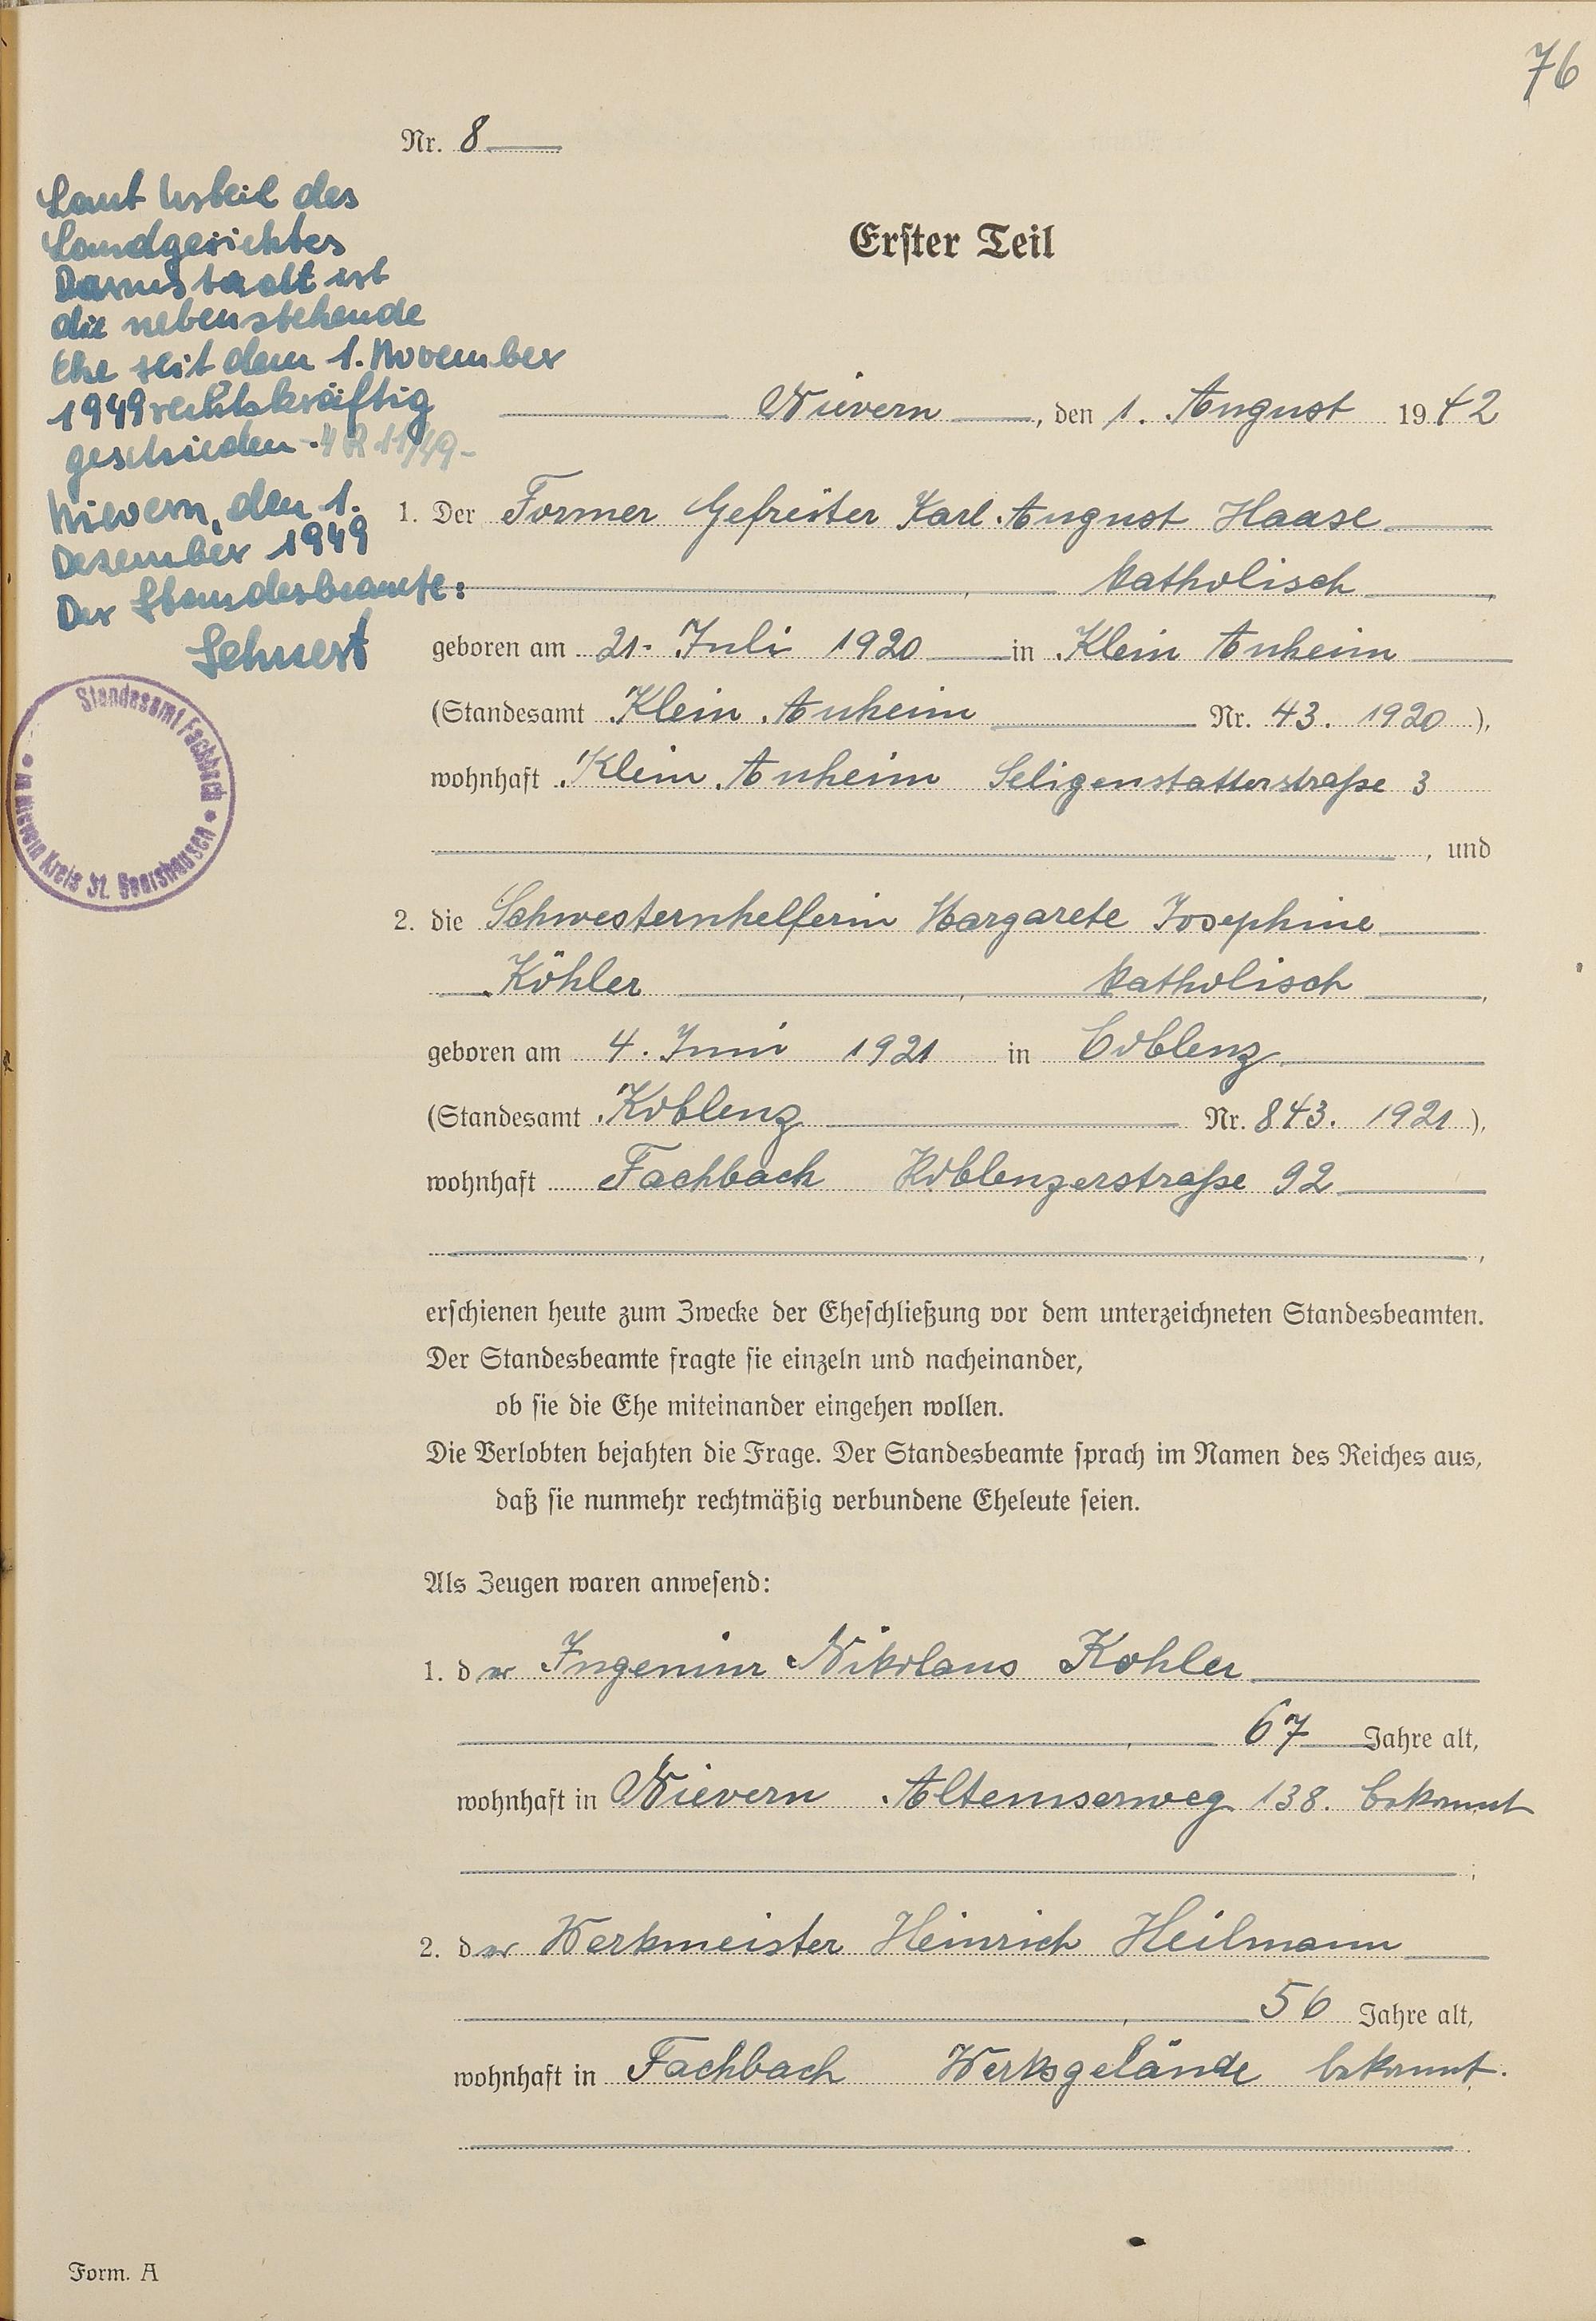 76
Nr. 8
Laut Urteil des
Landgerichtes
Darmstadt ist
die nebenstehende
Ehe seit dem 1. November
1949 rechtskräftig
geschieden - 4 R 11/49 -
Nievern, den 1.
Dezember 1949
Der Standesbeamte:
Lehnert
Standesamt Fachbach
in Nievern Kreis St. Goarshausen
Erster Teil
Nievern, den 1. August 1942
1. Der Former Gefreiter Karl August Haase
, katholisch,
geboren am 21. Juli 1920 in Klein Auheim
(Standesamt Klein Auheim Nr. 43. 1920),
wohnhaft Klein Auheim Seligenstatterstraße 3
, und
2. die Schwesternhelferin Margarete Josephine
Köhler, katholisch,
geboren am 4. Juni 1921 in Coblenz
(Standesamt Koblenz Nr. 843. 1921),
wohnhaft Fachbach Koblenzerstraße 92
,
erschienen heute zum Zwecke der Eheschließung vor dem unterzeichneten Standesbeamten.
Der Standesbeamte fragte sie einzeln und nacheinander,
ob sie die Ehe miteinander eingehen wollen.
Die Verlobten bejahten die Frage. Der Standesbeamte sprach im Namen des Reiches aus,
daß sie nunmehr rechtmäßig verbundene Eheleute seien.
Als Zeugen waren anwesend:
1. der Ingeniur Nikolaus Kohler
, 67 Jahre alt,
wohnhaft in Nievern Altemserweg 138. bekannt
;
2. der Werkmeister Heinrich Heilmann
, 56 Jahre alt,
wohnhaft in Fachbach Werksgelände bekannt.
.
Form. A